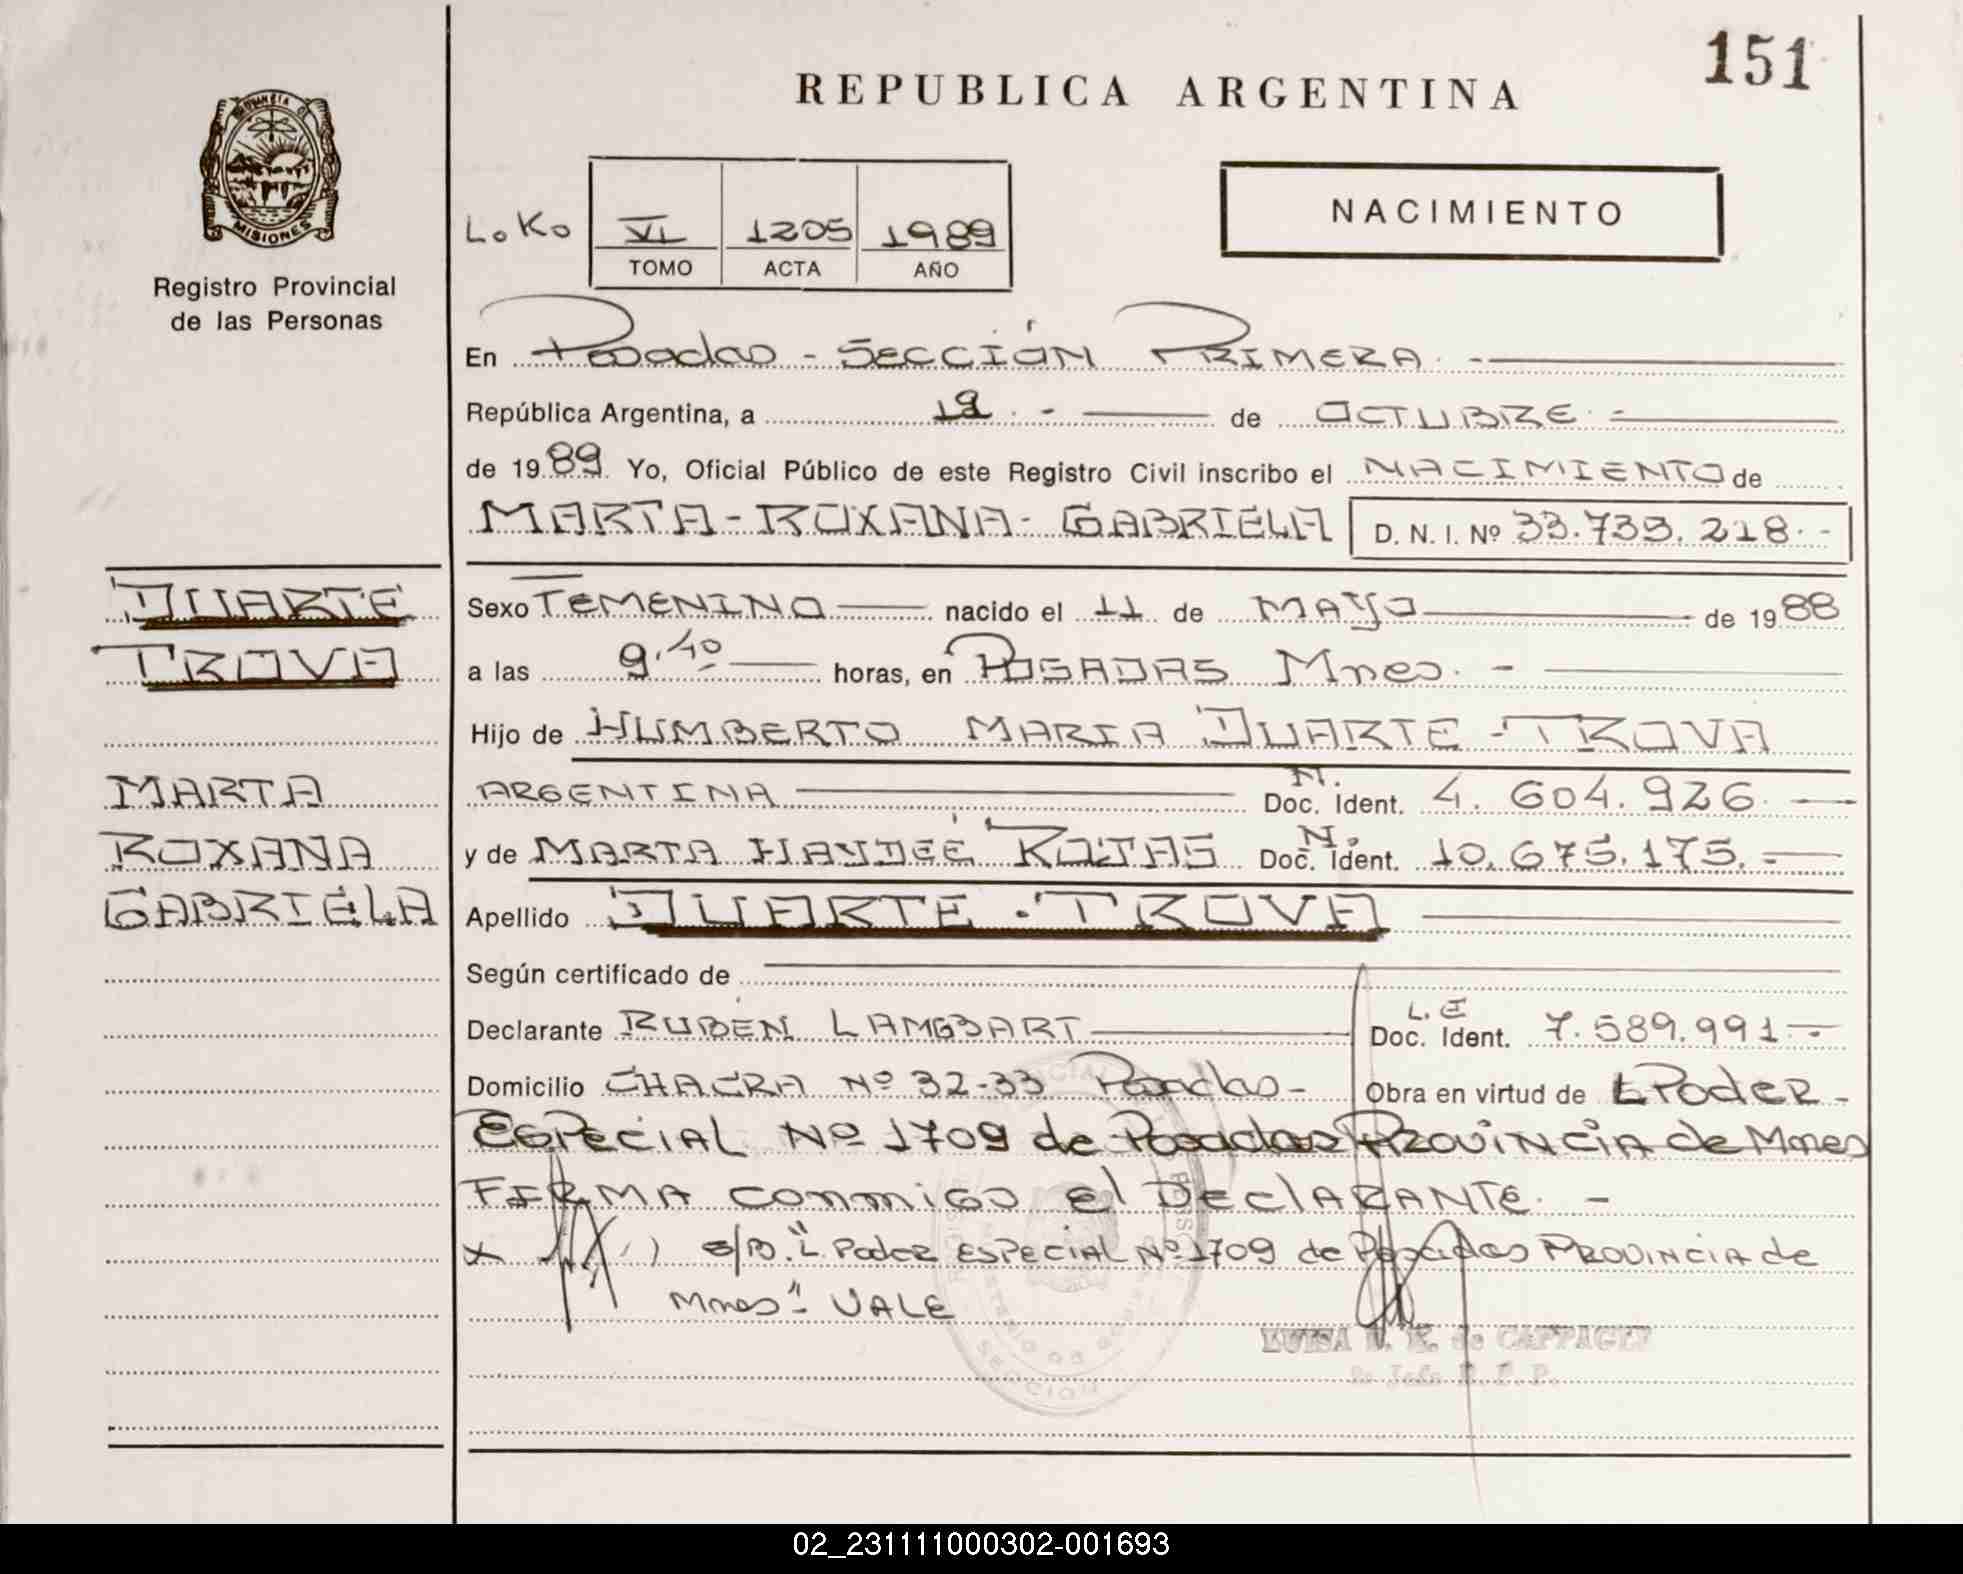 151
REPUBLICA ARGENTINA
PROVINCIA DE
MISIONES
Registro Provincial
de las Personas
NACIMIENTO
LoKo VI 1205 1989
TOMO ACTA AÑO
En Posadas - SECCIÓN PRIMERA. -
República Argentina, a 19. - de OCTUBRE. -
de 1989. Yo, Oficial Público de este Registro Civil inscribo el NACIMIENTO de
MARTA - ROXANA - GABRIELA D. N. I. Nº 33.739.218. -
DUARTE
TROVA
MARTA
ROXANA
GABRIELA
Sexo FEMENINO nacido el 11 de MAYO de 1988
a las 9.40 horas, en POSADAS Mnes. -
Hijo de HUMBERTO MARIA DUARTE - TROVA
ARGENTINA M. Doc. Ident. 4.604.926. -
y de MARTA HAYDEÉ ROJAS N. Doc. Ident. 10.675.175. -
Apellido DUARTE - TROVA
Según certificado de
Declarante RUBÉN LAMGBART L.E Doc. Ident. 7.589.991 -
Domicilio CHACRA Nº 32-33 Posadas - Obra en virtud de L PODER -
ESPECIAL Nº 1709 de Posadas PROVINCIA de Mnes
FIRMA conmigo el DEClARANTE. -
S/B. "L Poder ESPECIAL Nº 1709 de Posadas PROVINCIA de
Mnes" VALE
LUISA de CAFFAGEI
SECCION
02_231111000302-001693